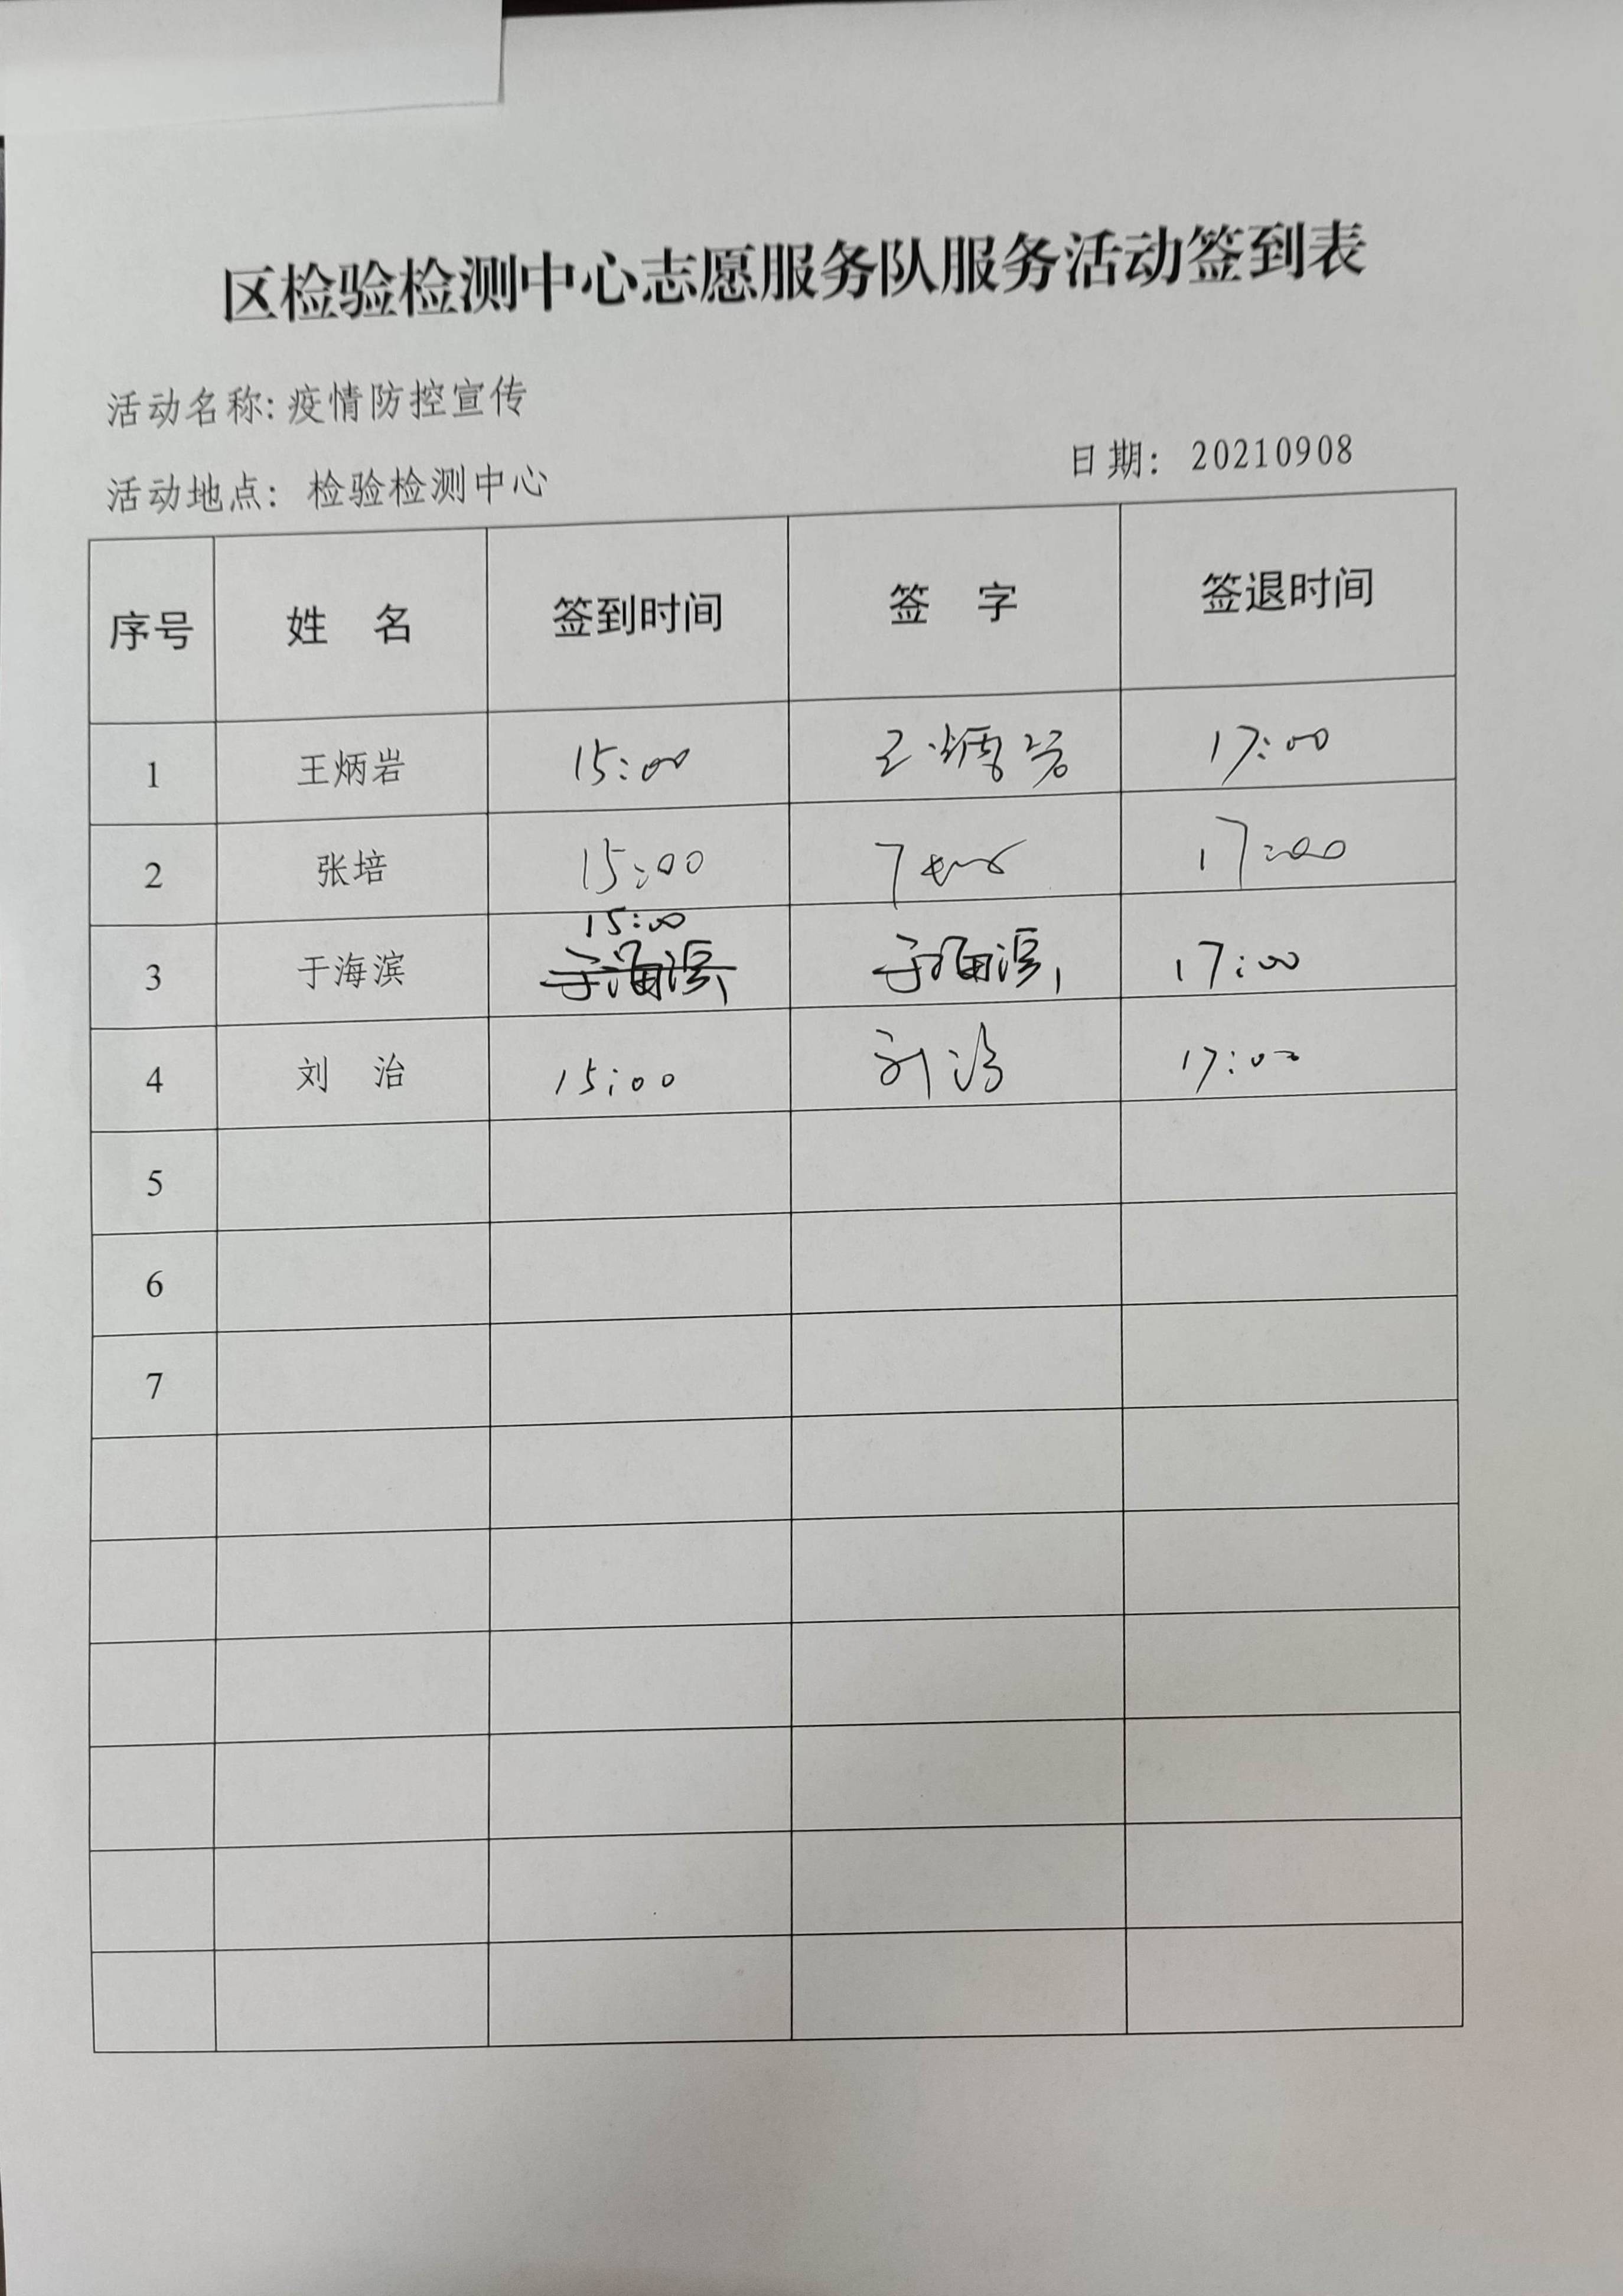 区检验检测中心志愿服务队服务活动签到表
活动名称: 疫情防控宣传
活动地点: 检验检测中心 日期: 20210908
序号 姓 名 签到时间 签 字 签退时间
1 王炳岩 15:00 王炳岩 17:00
2 张培 15:00 17:00
15:00
3 于海滨 于海滨 于海滨 17:00
4 刘 治 15:00 刘治 17:00
5
6
7